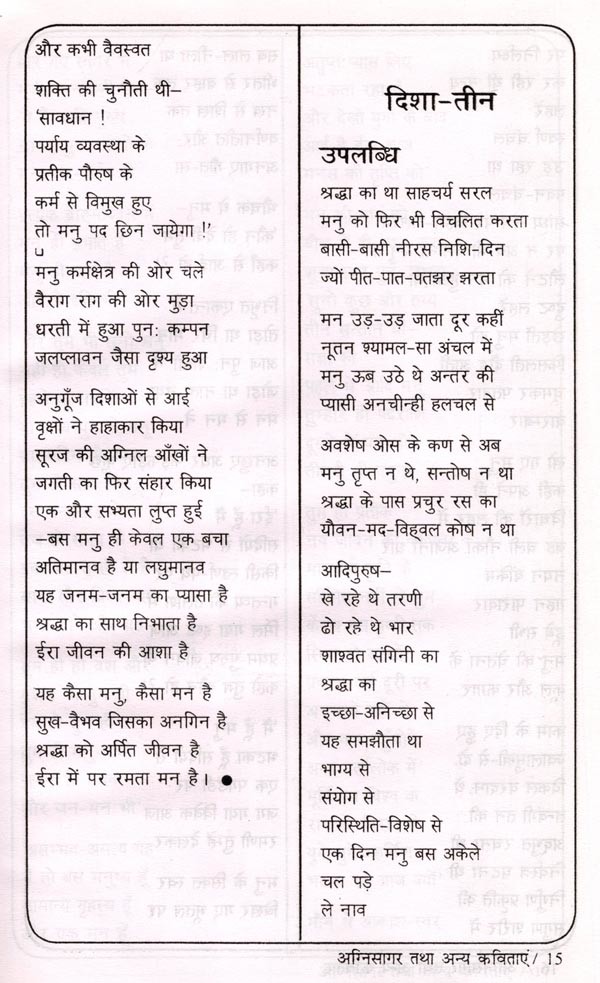 और कभी वैवस्वत
शक्ति की चुनौती थी–
'सावधान !
पर्याय व्यवस्था के
प्रतीक पौरुष के
कर्म से विमुख हुए
तो मनु पद छिन जायेगा !'
मनु कर्मक्षेत्र की ओर चले
वैराग राग की ओर मुड़ा
धरती में हुआ पुन: कम्पन
जलप्लावन जैसा दृश्य हुआ
अनुगूँज दिशाओं से आई
वृक्षों ने हाहाकार किया
सूरज की अग्निल आँखों ने
जगती का फिर संहार किया
एक और सभ्यता लुप्त हुई
–बस मनु ही केवल एक बचा
अतिमानव है या लघुमानव
यह जनम-जनम का प्यासा है
श्रद्धा का साथ निभाता है
ईरा जीवन की आशा है
यह कैसा मनु, कैसा मन है
सुख-वैभव जिसका अनगिन है
श्रद्धा को अर्पित जीवन है
ईरा में पर रमता मन है। ●
दिशा-तीन
उपलब्धि
श्रद्धा का था साहचर्य सरल
मनु को फिर भी विचलित करता
बासी-बासी नीरस निशि-दिन
ज्यों पीत-पात-पतझर झरता
मन उड़-उड़ जाता दूर कहीं
नूतन श्यामल-सा अंचल में
मनु ऊब उठे थे अन्तर की
प्यासी अनचीन्ही हलचल से
अवशेष ओस के कण से अब
मनु तृप्त न थे, सन्तोष न था
श्रद्धा के पास प्रचुर रस का
यौवन-मद-विह्वल कोष न था
आदिपुरुष–
खे रहे थे तरणी
ढो रहे थे भार
शाश्वत संगिनी का
श्रद्धा का
इच्छा-अनिच्छा से
यह समझौता था
भाग्य से
संयोग से
परिस्थिति-विशेष से
एक दिन मनु बस अकेले
चल पड़े
ले नाव
अग्निसागर तथा अन्य कविताएं/ 15